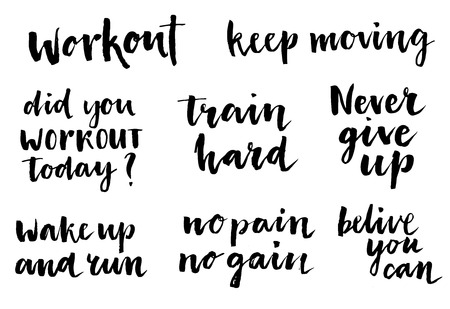 Workout
keep moving
did you
WORKOUT
today?
train
hard
Never
give
up
wake up
and run
no pain
no gain
belive
you
can